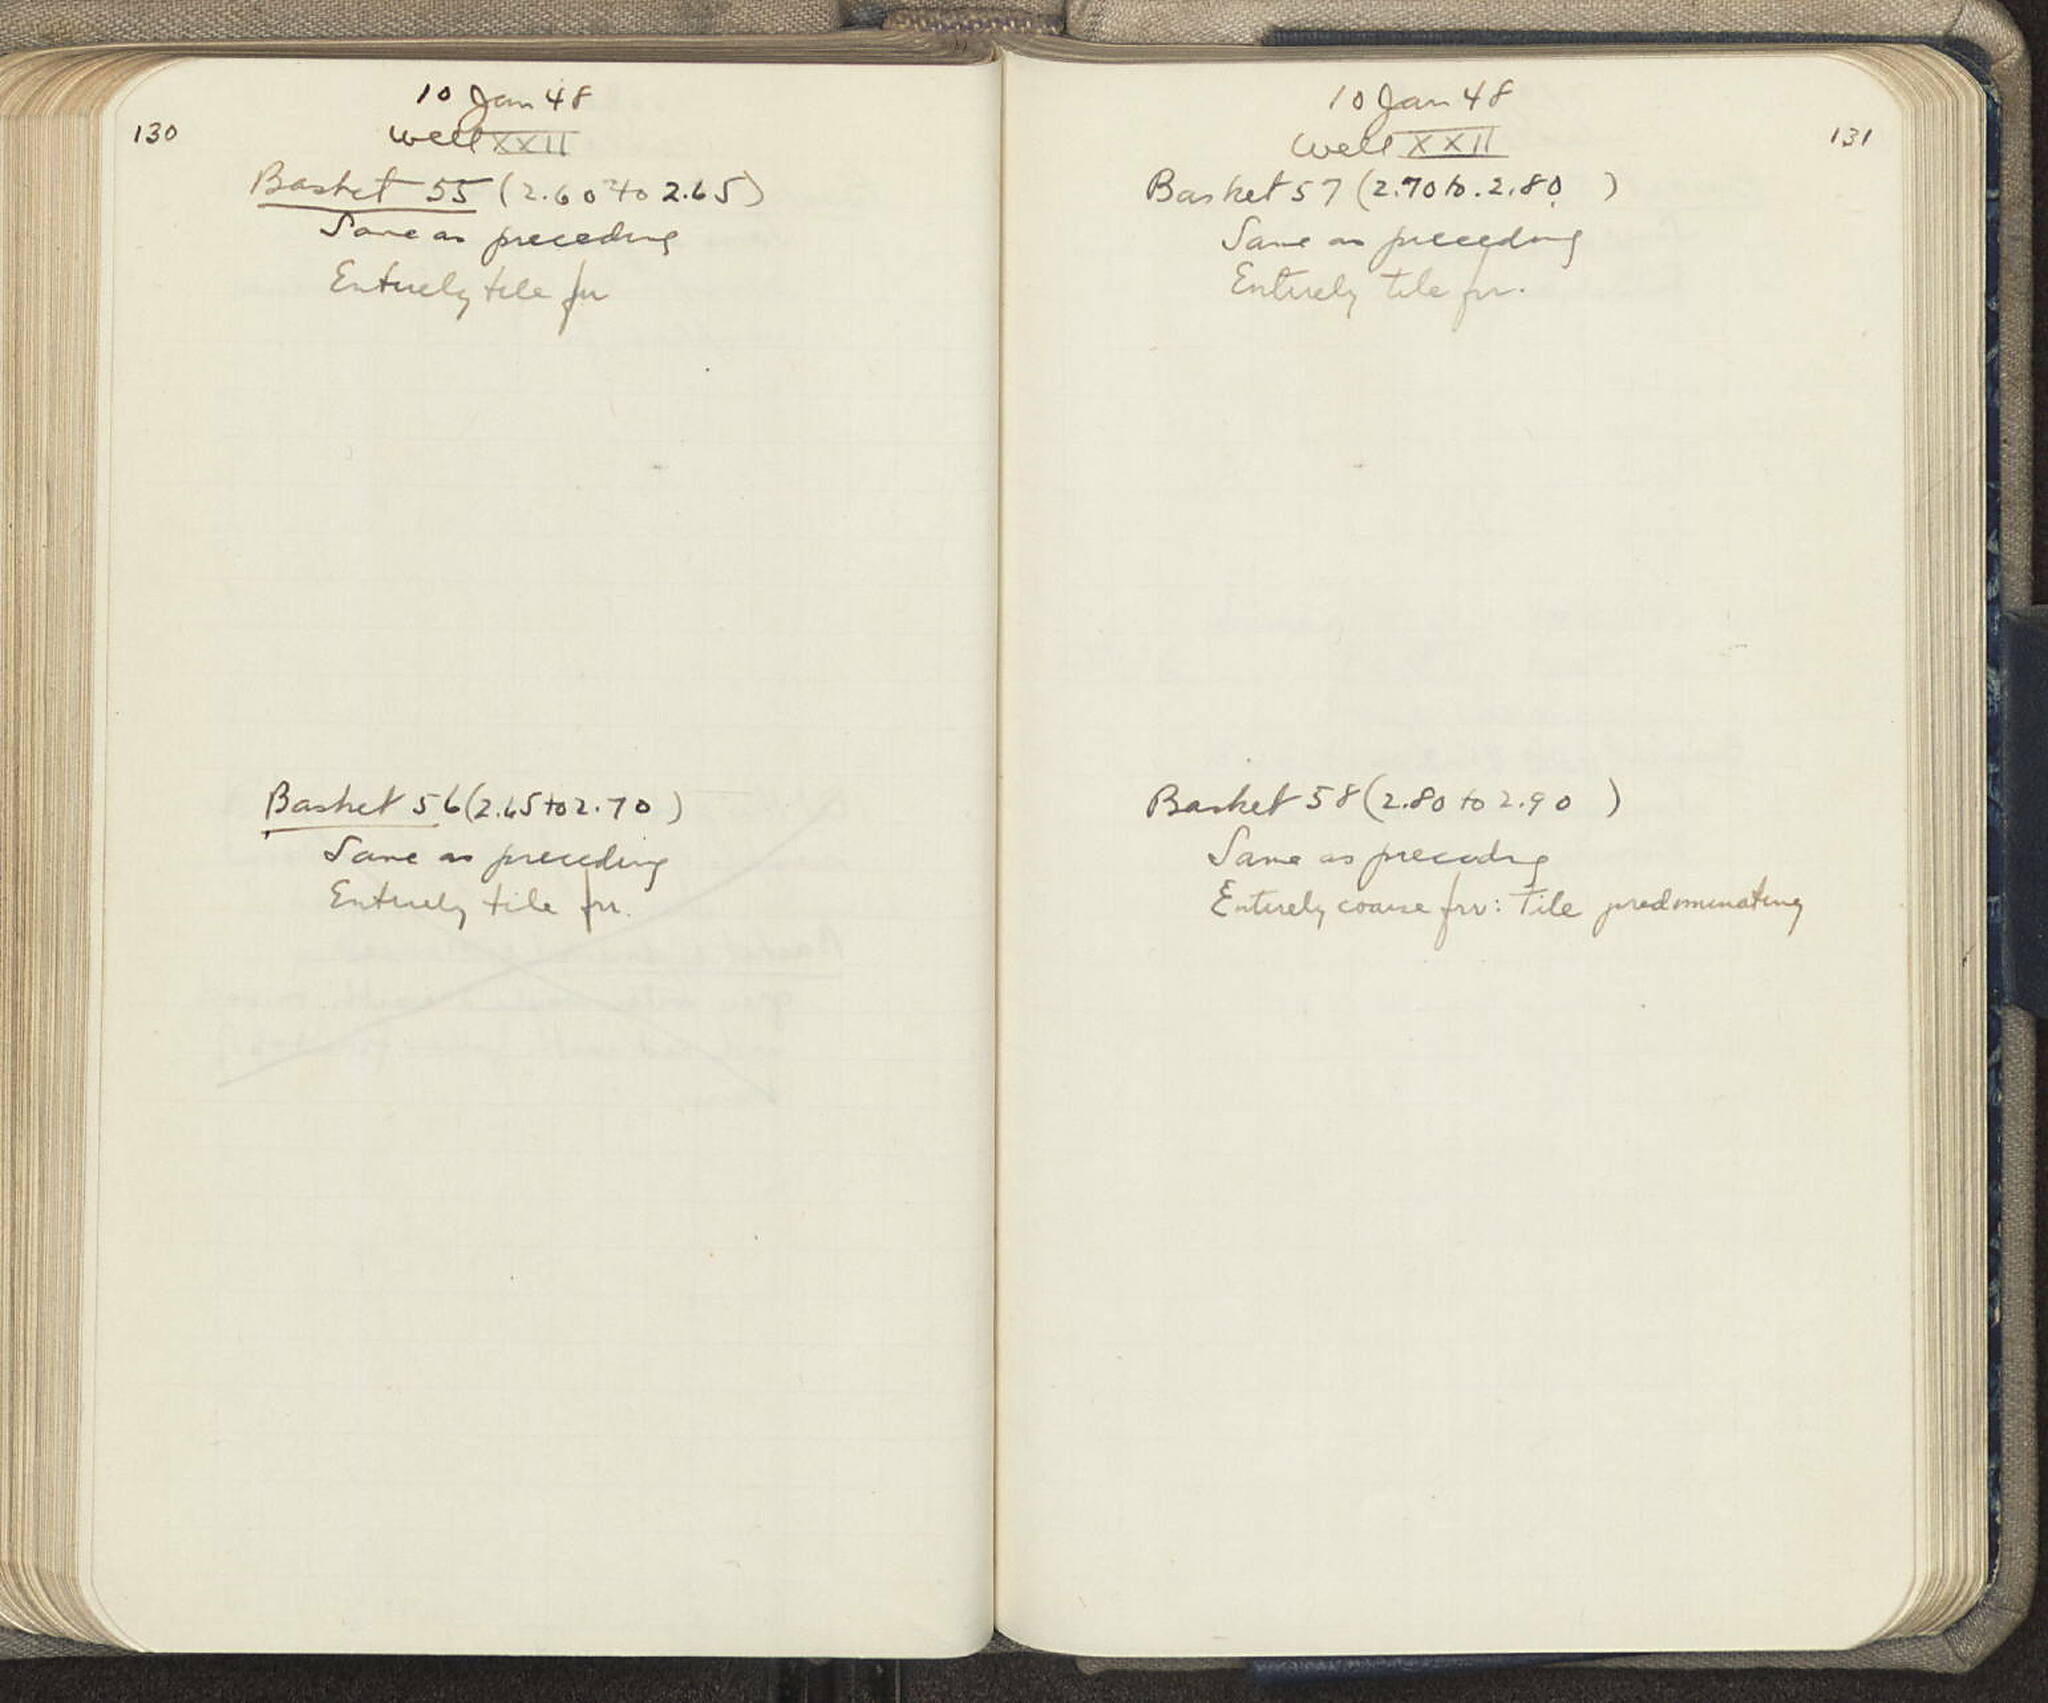 130
10 Jan 48
Well XXII
Basket 55 (2.60 to 2.65)
Same as preceding
Entirely tile frr
Basket 56 (2.65 to 2.70)
Same as preceding
Entirely tile frr.
131
10 Jan 48
Well XXII
Basket 57 (2.70 to 2.80)
Same as preceding
Entirely tile frr.
Basket 58 (2.80 to 2.90)
Same as preceding
Entirely coarse frr: Tile predominating